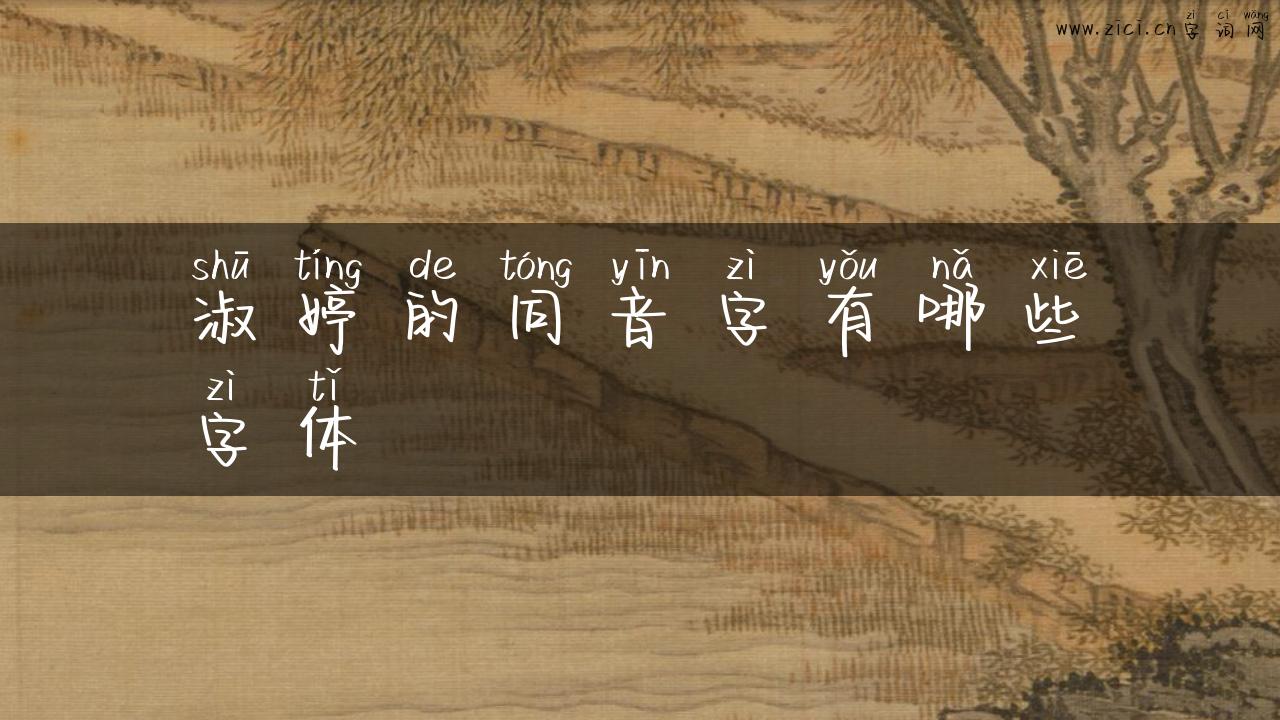 zì cí wǎng
www.zici.cn字词网
shū tíng de tóng yīn zì yǒu nǎ xiē
淑婷的同音字有哪些
zì tǐ
字体